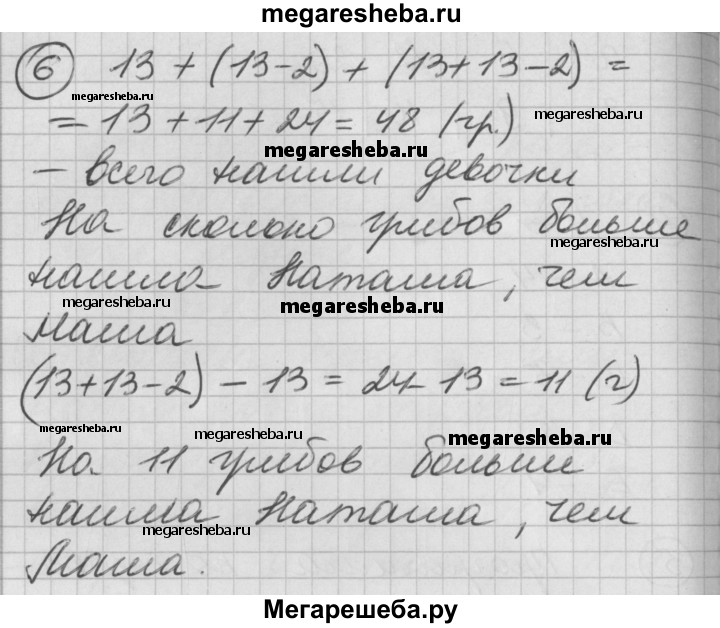 megaresheba.ru
6 13 + (13-2) + (13+13-2) =
megaresheba.ru
= 13 + 11 + 24 = 48 (гр.)
megaresheba.ru
megaresheba.ru
- всего нашли девочки
На сколоко грибов больше
megaresheba.ru
нашла Наташа, чем
megaresheba.ru
megaresheba.ru
Маша
(13+13-2) - 13 = 24-13 = 11 (г)
megaresheba.ru
megaresheba.ru
megaresheba.ru
На 11 грибов больше
нашла Наташа, чем
megaresheba.ru
Маша.
megaresheba.ru
Мегарешеба.ру